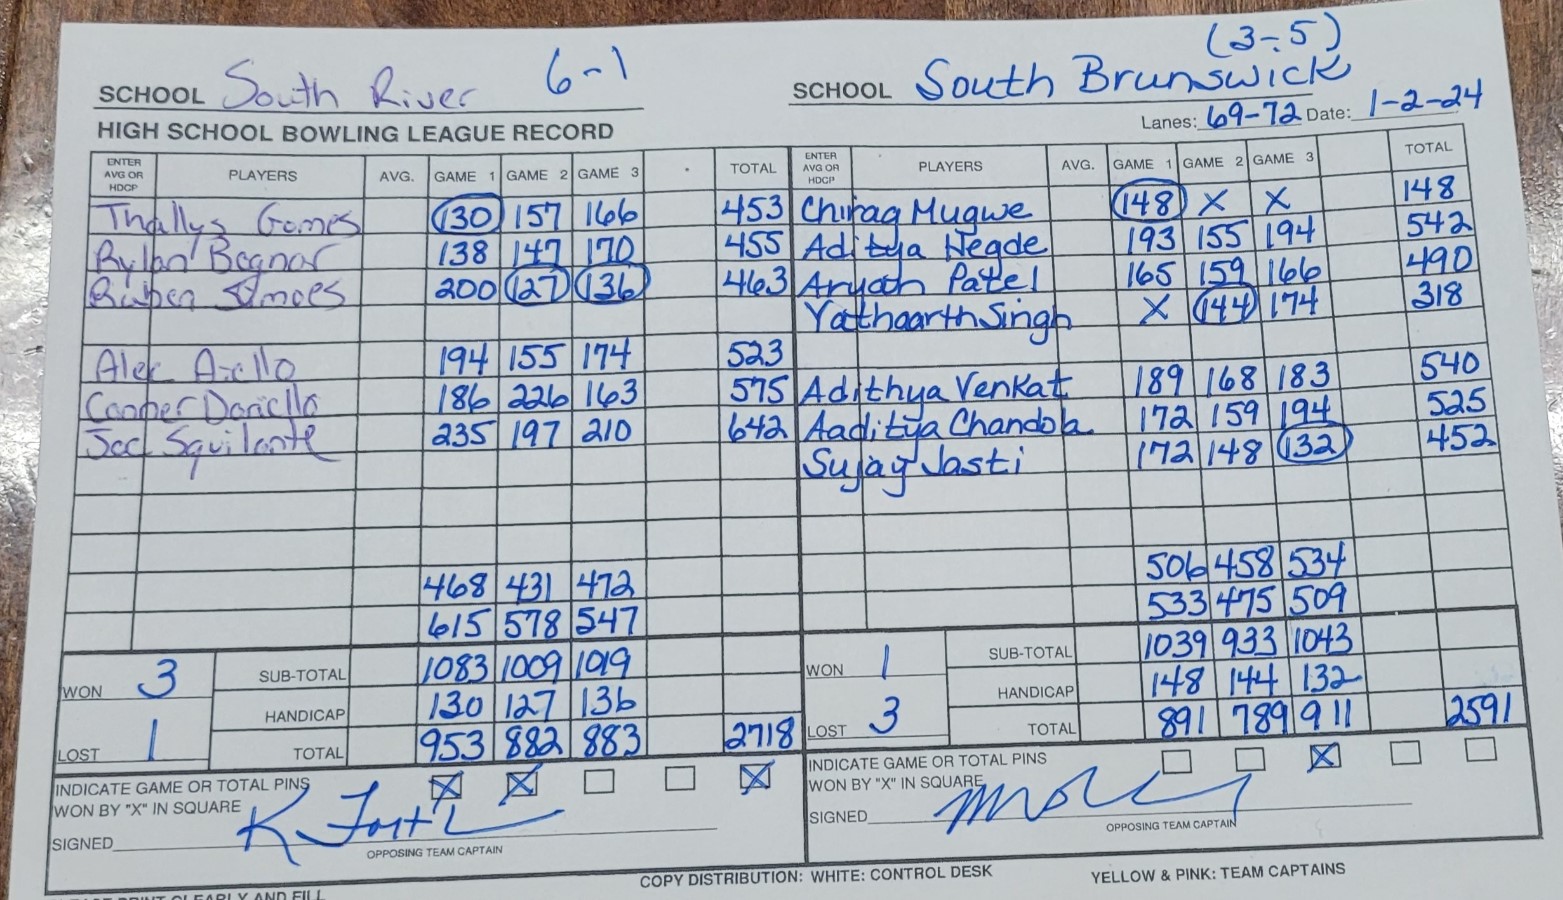 SCHOOL South River 6-1
SCHOOL South Brunswick (3-5)
HIGH SCHOOL BOWLING LEAGUE RECORD
Lanes: 69-72 Date: 1-2-24
ENTER AVG OR HDCP PLAYERS AVG. GAME 1 GAME 2 GAME 3 TOTAL
Thallys Gomes 130 157 166 453
Rylan Bognar 138 147 170 455
Ruben Simoes 200 127 136 463
Alec Aiello 194 155 174 523
Cooper Daniello 186 226 163 575
Squilante 235 197 210 642
468 431 472
615 578 547
WON 3 SUB-TOTAL 1083 1009 1019
HANDICAP 130 127 136
LOST 1 TOTAL 953 882 883 2718
INDICATE GAME OR TOTAL PINS
WON BY "X" IN SQUARE X X X
SIGNED
OPPOSING TEAM CAPTAIN
ENTER AVG OR HDCP PLAYERS AVG. GAME 1 GAME 2 GAME 3 TOTAL
Chirag Mugwe 148 X X 148
Aditya Hegde 193 155 194 542
Aryan Patel 165 159 166 490
Yathaarth Singh X 144 174 318
Adithya Venkat 189 168 183 540
Aaditya Chandok 172 159 194 525
Sujay Jasti 172 148 132 452
506 458 534
533 475 509
WON 1 SUB-TOTAL 1039 933 1043
HANDICAP 148 144 132
LOST 3 TOTAL 891 789 911 2591
INDICATE GAME OR TOTAL PINS
WON BY "X" IN SQUARE X
SIGNED
OPPOSING TEAM CAPTAIN
COPY DISTRIBUTION: WHITE: CONTROL DESK YELLOW & PINK: TEAM CAPTAINS
PLEASE PRINT CLEARLY AND FILL